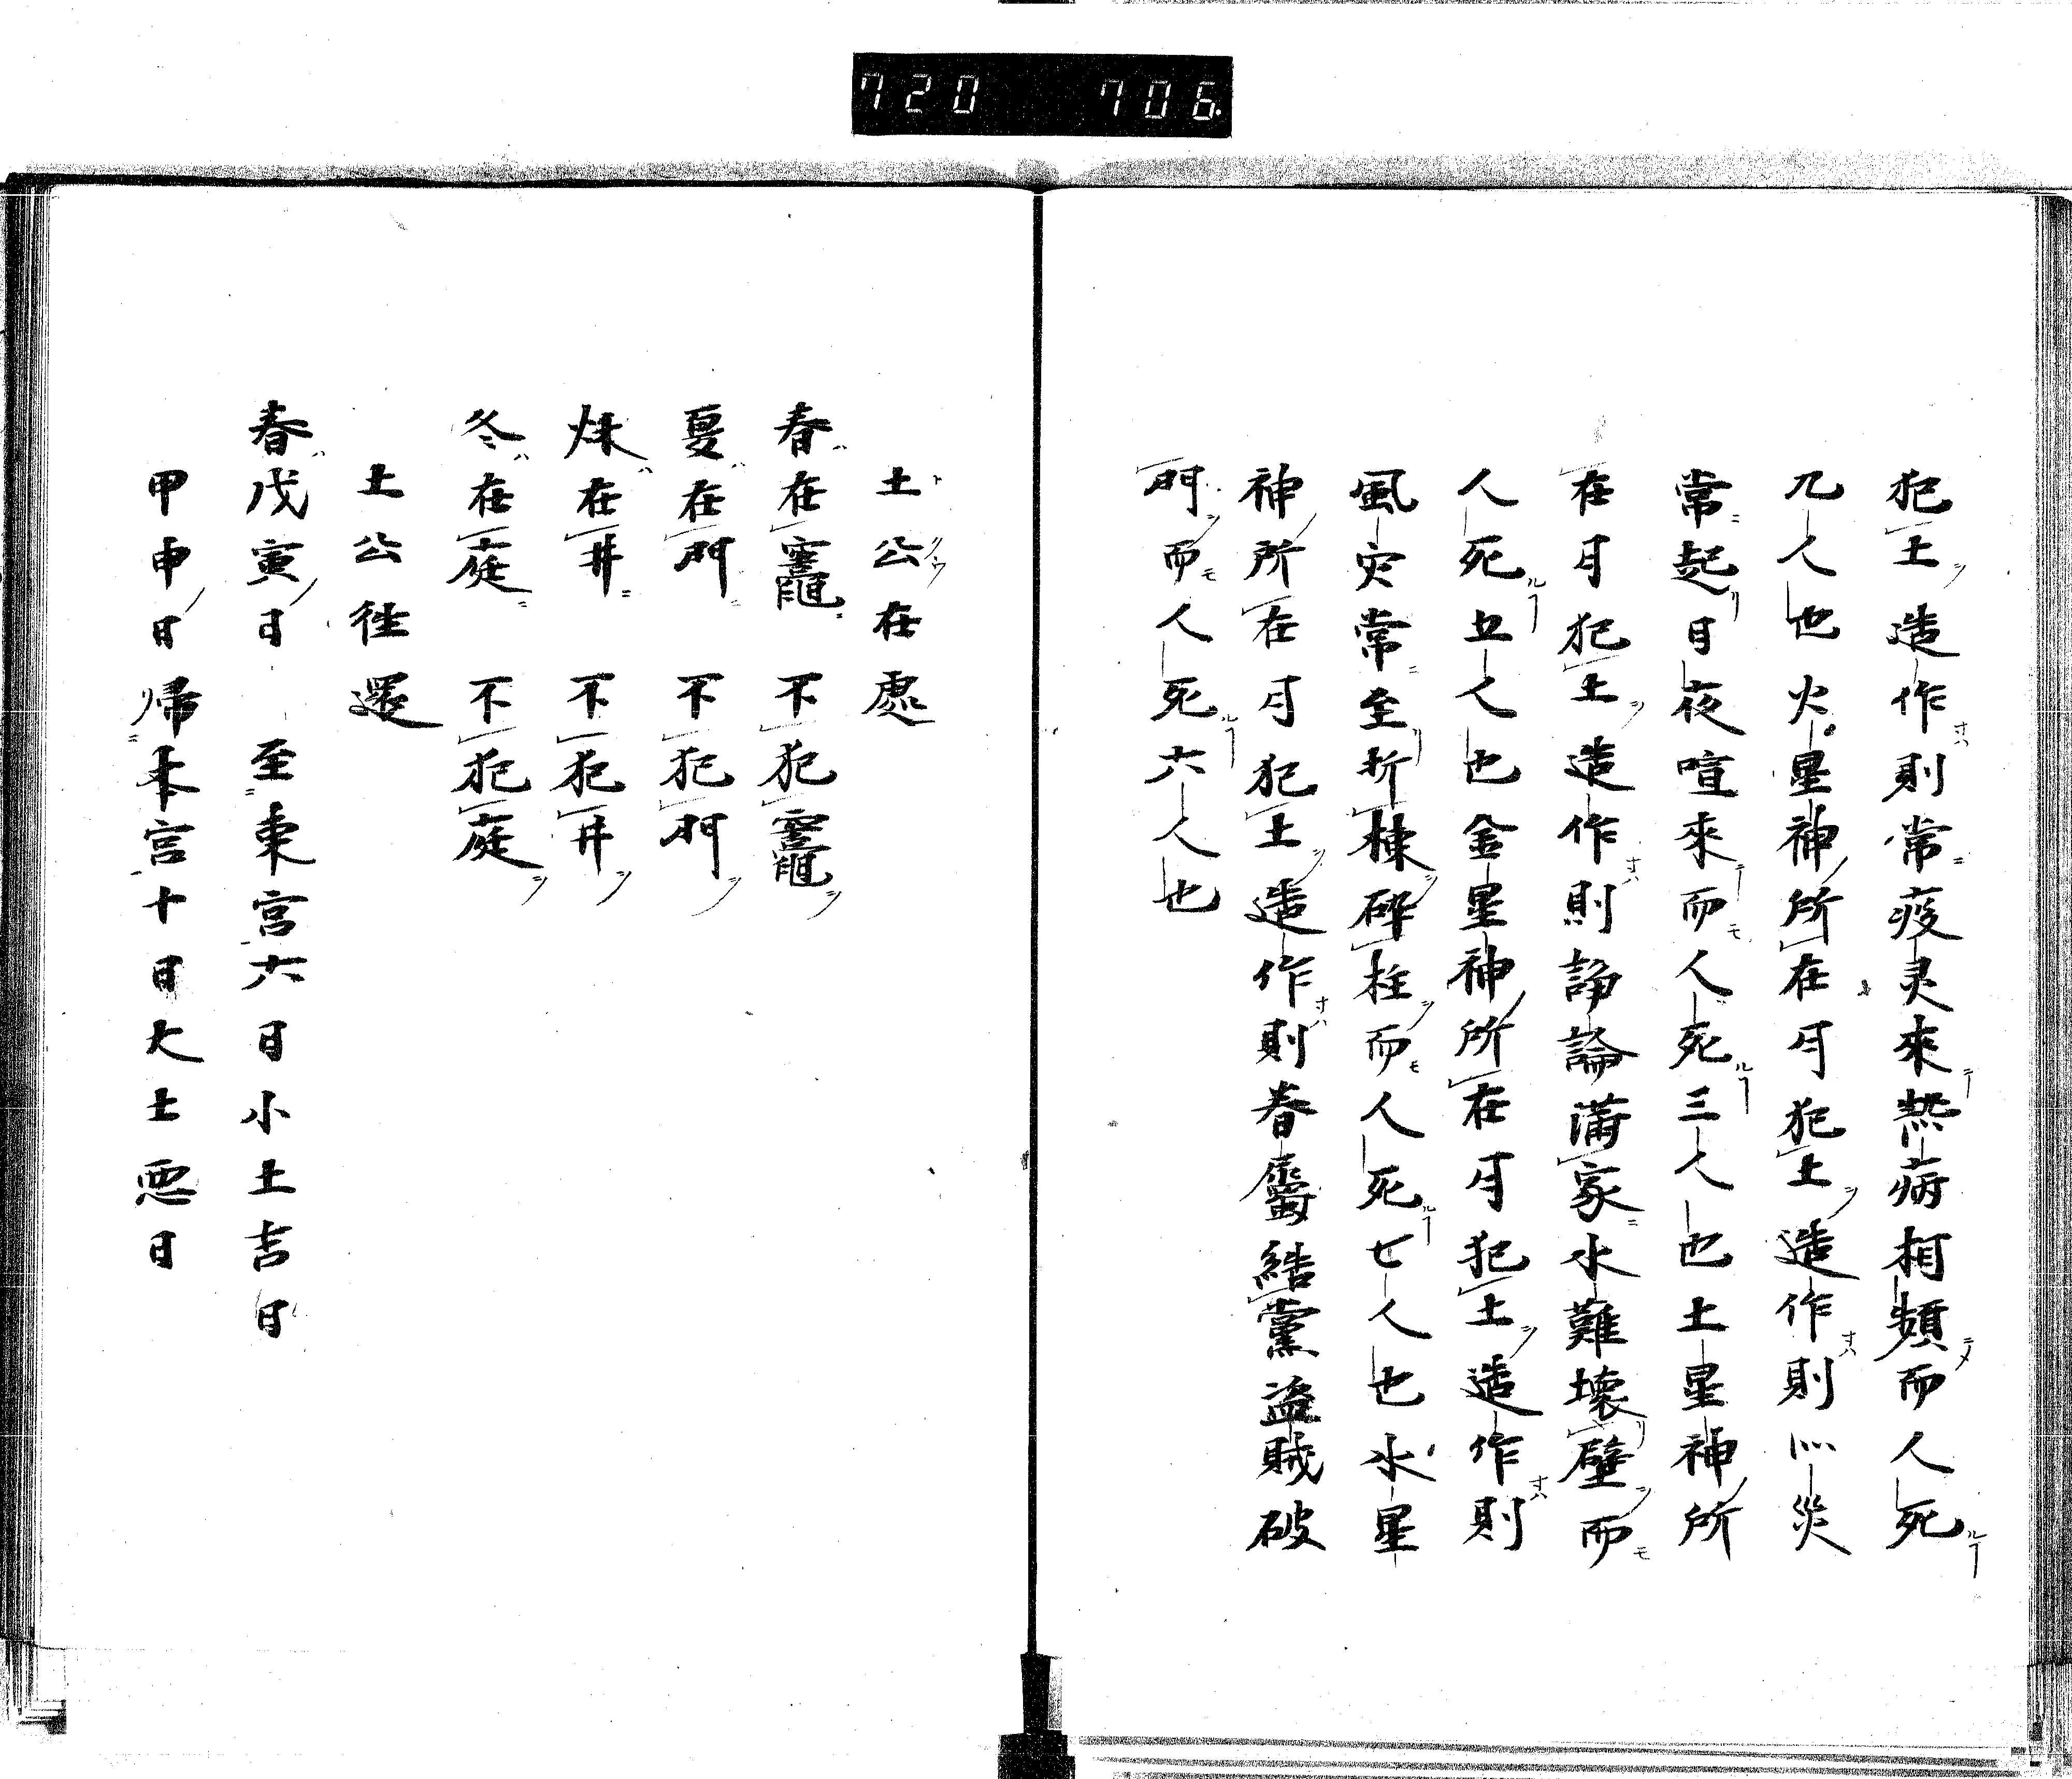 720 706
犯土造作則常疫灵來热病相類而人死
九人也火星神所在月犯土造作則災
常起日夜喧來而人死三人也土星神所
在月犯土造作則諍論滿家水難壞壁而
人死五人也金星神所在月犯土造作則
風灾常至折棟碎柱而人死七人也水星
神所在月犯土造作則春屬結黨盗賊破
門而人死六人也
土公在處
春在竈 不犯竈
夏在門 不犯門
秌在井 不犯井
冬在庭 不犯庭
土公徃還
春戊寅日 至東宮六日小土吉日
甲申日歸本宮十日大土悪日